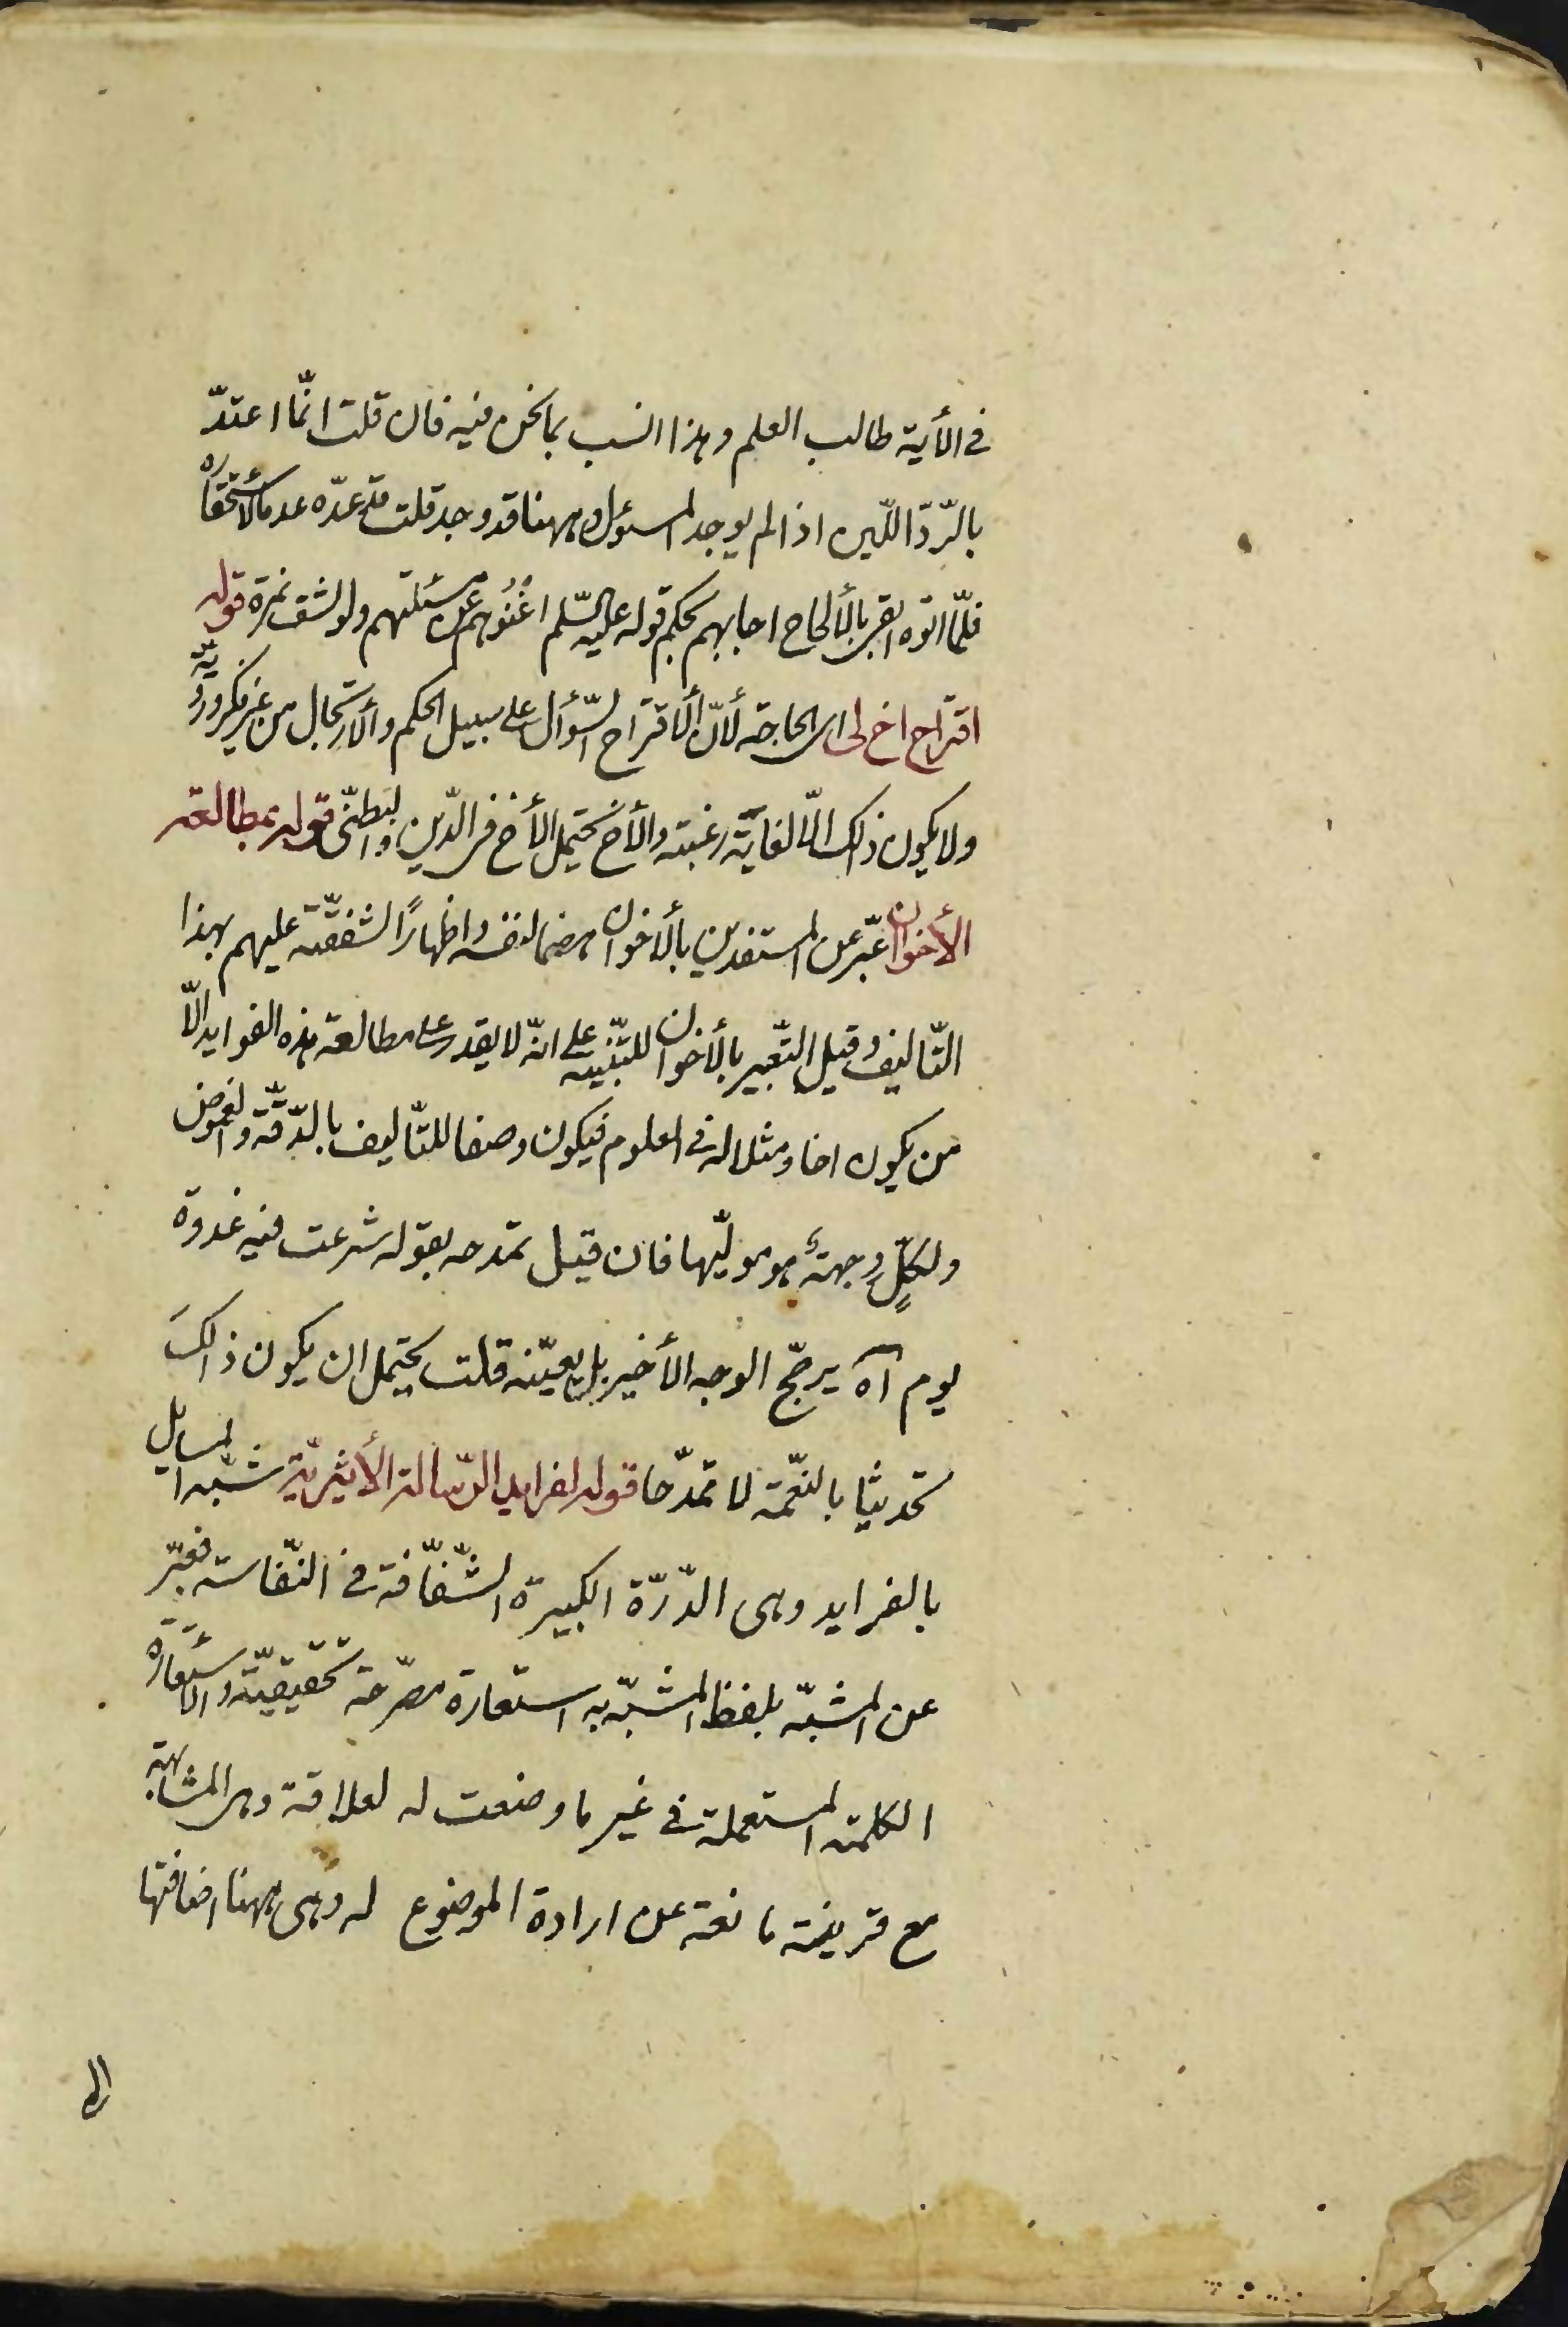 في الأية طالب العلم وهذا انسب بما نحن فيه فان قلت انّما اعتدّ
بالرّدّ اللّين اذا لم يوجد المسؤل وههنا قد وجد قلت قد عدّه عدما لاستحقاره
فلمّا اتوه بالألحاح اجابهم بحكم قوله عليه السّلم اغنُوهم عن مسئلتهم ولو بشق تمرة قوله
اقتراح اخ لى اى لحاجة لأنّ الأقتراح السّؤال على سبيل الحكم والأرتجال من غير فكر ورويّة
ولا يكون ذلك الّا لغاية رغبته والأخ يحتمل الأخ فى الدّين والبطنّى قوله بمطالعة
الأخوان عبّر عن المستفدين بألاخوان هضما لنفسه واظهارًا لشفقّته عليهم بهذا
التّاليف وقيل التّعبير بالأخوان للتّنبيه على انّه لا يقدر على مطالعة هذه الفوايد الّا
من يكون اخا ومثلا له في العلوم فيكون وصفا للتّاليف بالدّقّة والغموض
ولكلٍّ وجهةٌ هو مولّيها فان قيل تمدحه بقوله شرعت فيه غدوة
يوم آه يرجّح الوجه الأخير بل يعيّنه قلت يحتمل ان يكون ذالكَ
تحديثا بالنعّمة لا تمدّحا قوله لفرايد الرّسالة الأثيريّة شبّه المسايل
بالفرايد وهى الدّرّة الكبيرة الشّفّافة في النّفاسة فعبّر
عن المشبّه بلفظ المشبّه به استعارة مصرّحة تحقيقيّة والأستعارة
الكلمة المستعملة في غير ما وضعت له لعلاقة وهى المشابهة
مع قرينة مانعة عن ارادة الموضوع له وهى ههنا اضافتها
الى